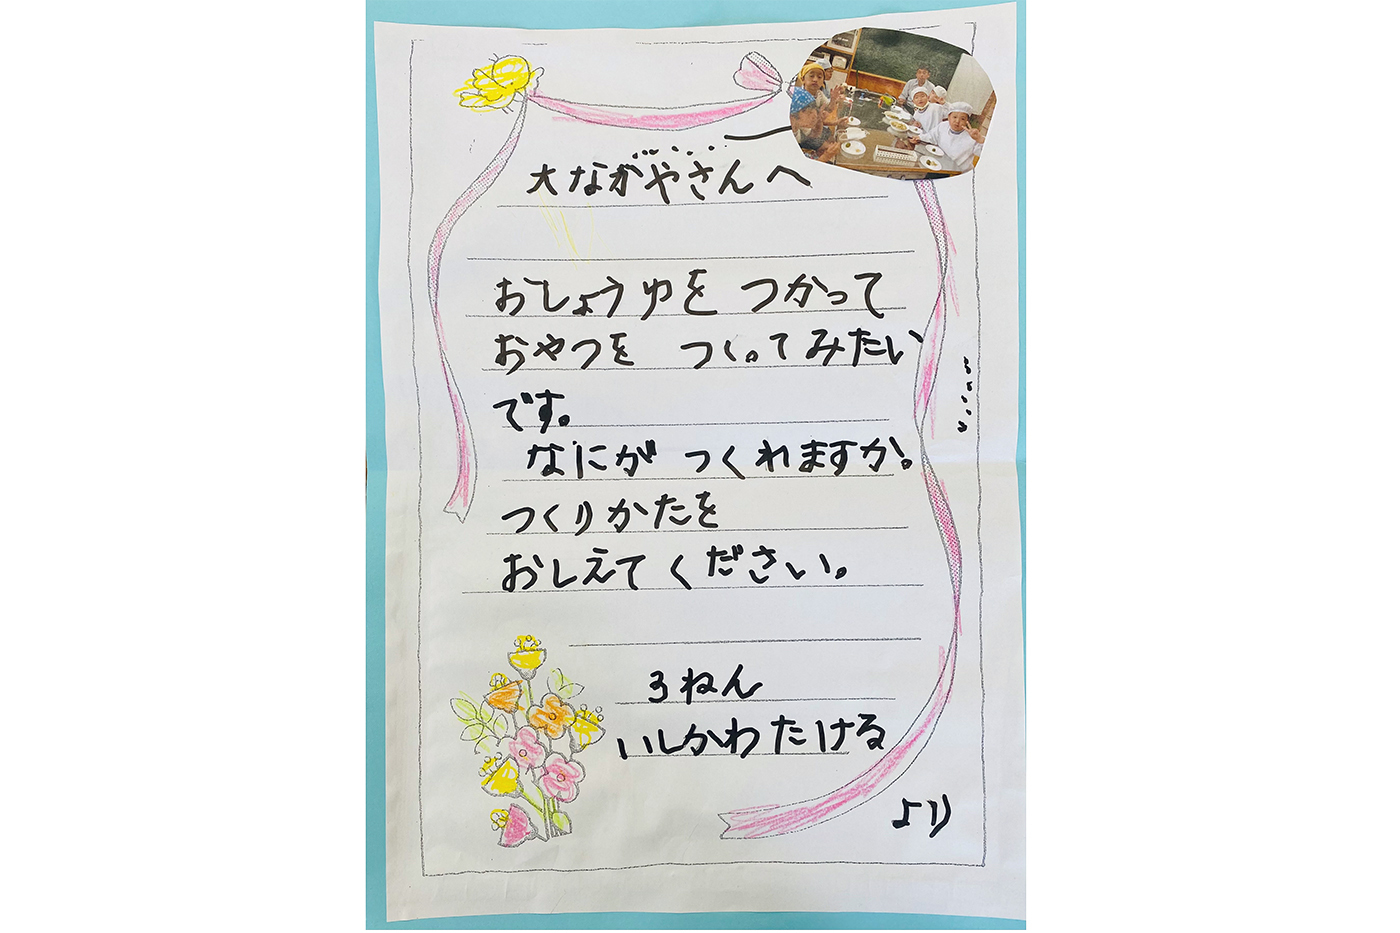 大ながやさんへ
おしょうゆを つかって
おやつを つくってみたい
です。
なにが つくれますか。
つくりかたを
おしえてください。
3ねん
いしかわたける
より